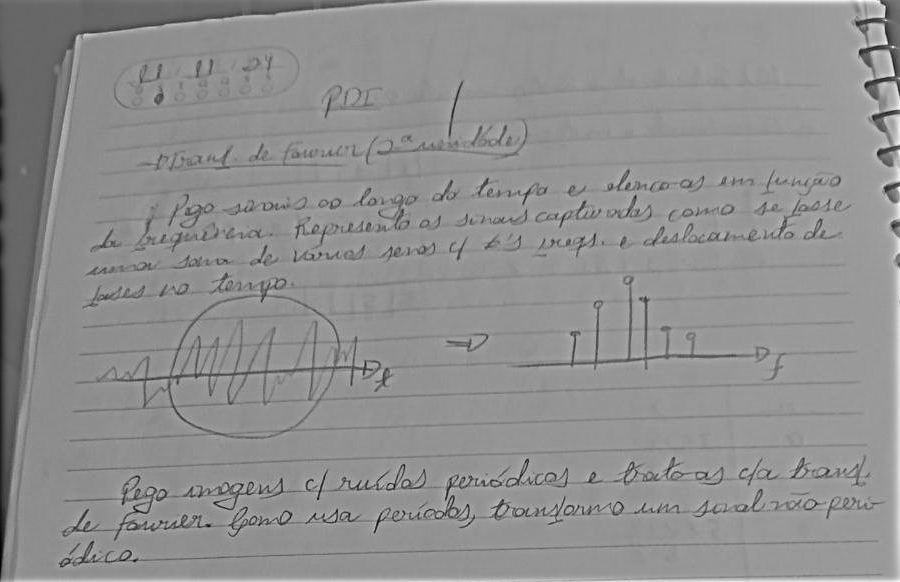 21 11 24
PDI
→ Transf. de fourier (2ª unidade)
Pego sinais ao longo do tempo e elenco-as em função
da frequência. Represento os sinais captivados como se fosse
uma soma de vários senos c/ freqs. e deslocamento de
fases no tempo.
t
⇒
f
Pego imagens c/ ruídos periódicos e trato as c/a transf.
de fourier. Como usa períodos, transformo um sinal não perí-
ódico.